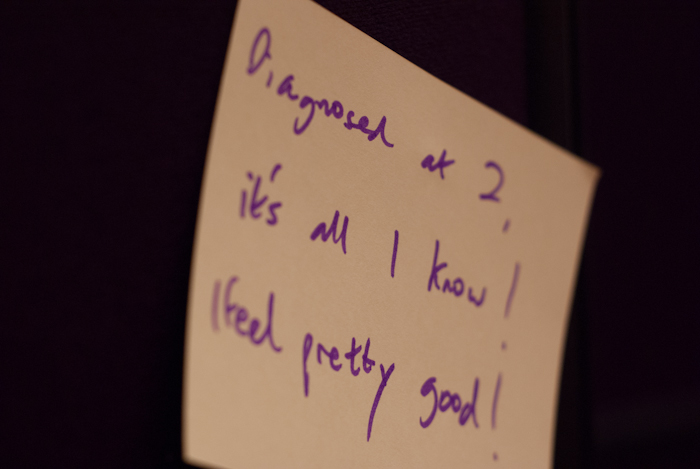 Diagnosed at 2,
it's all I know!
I feel pretty good!